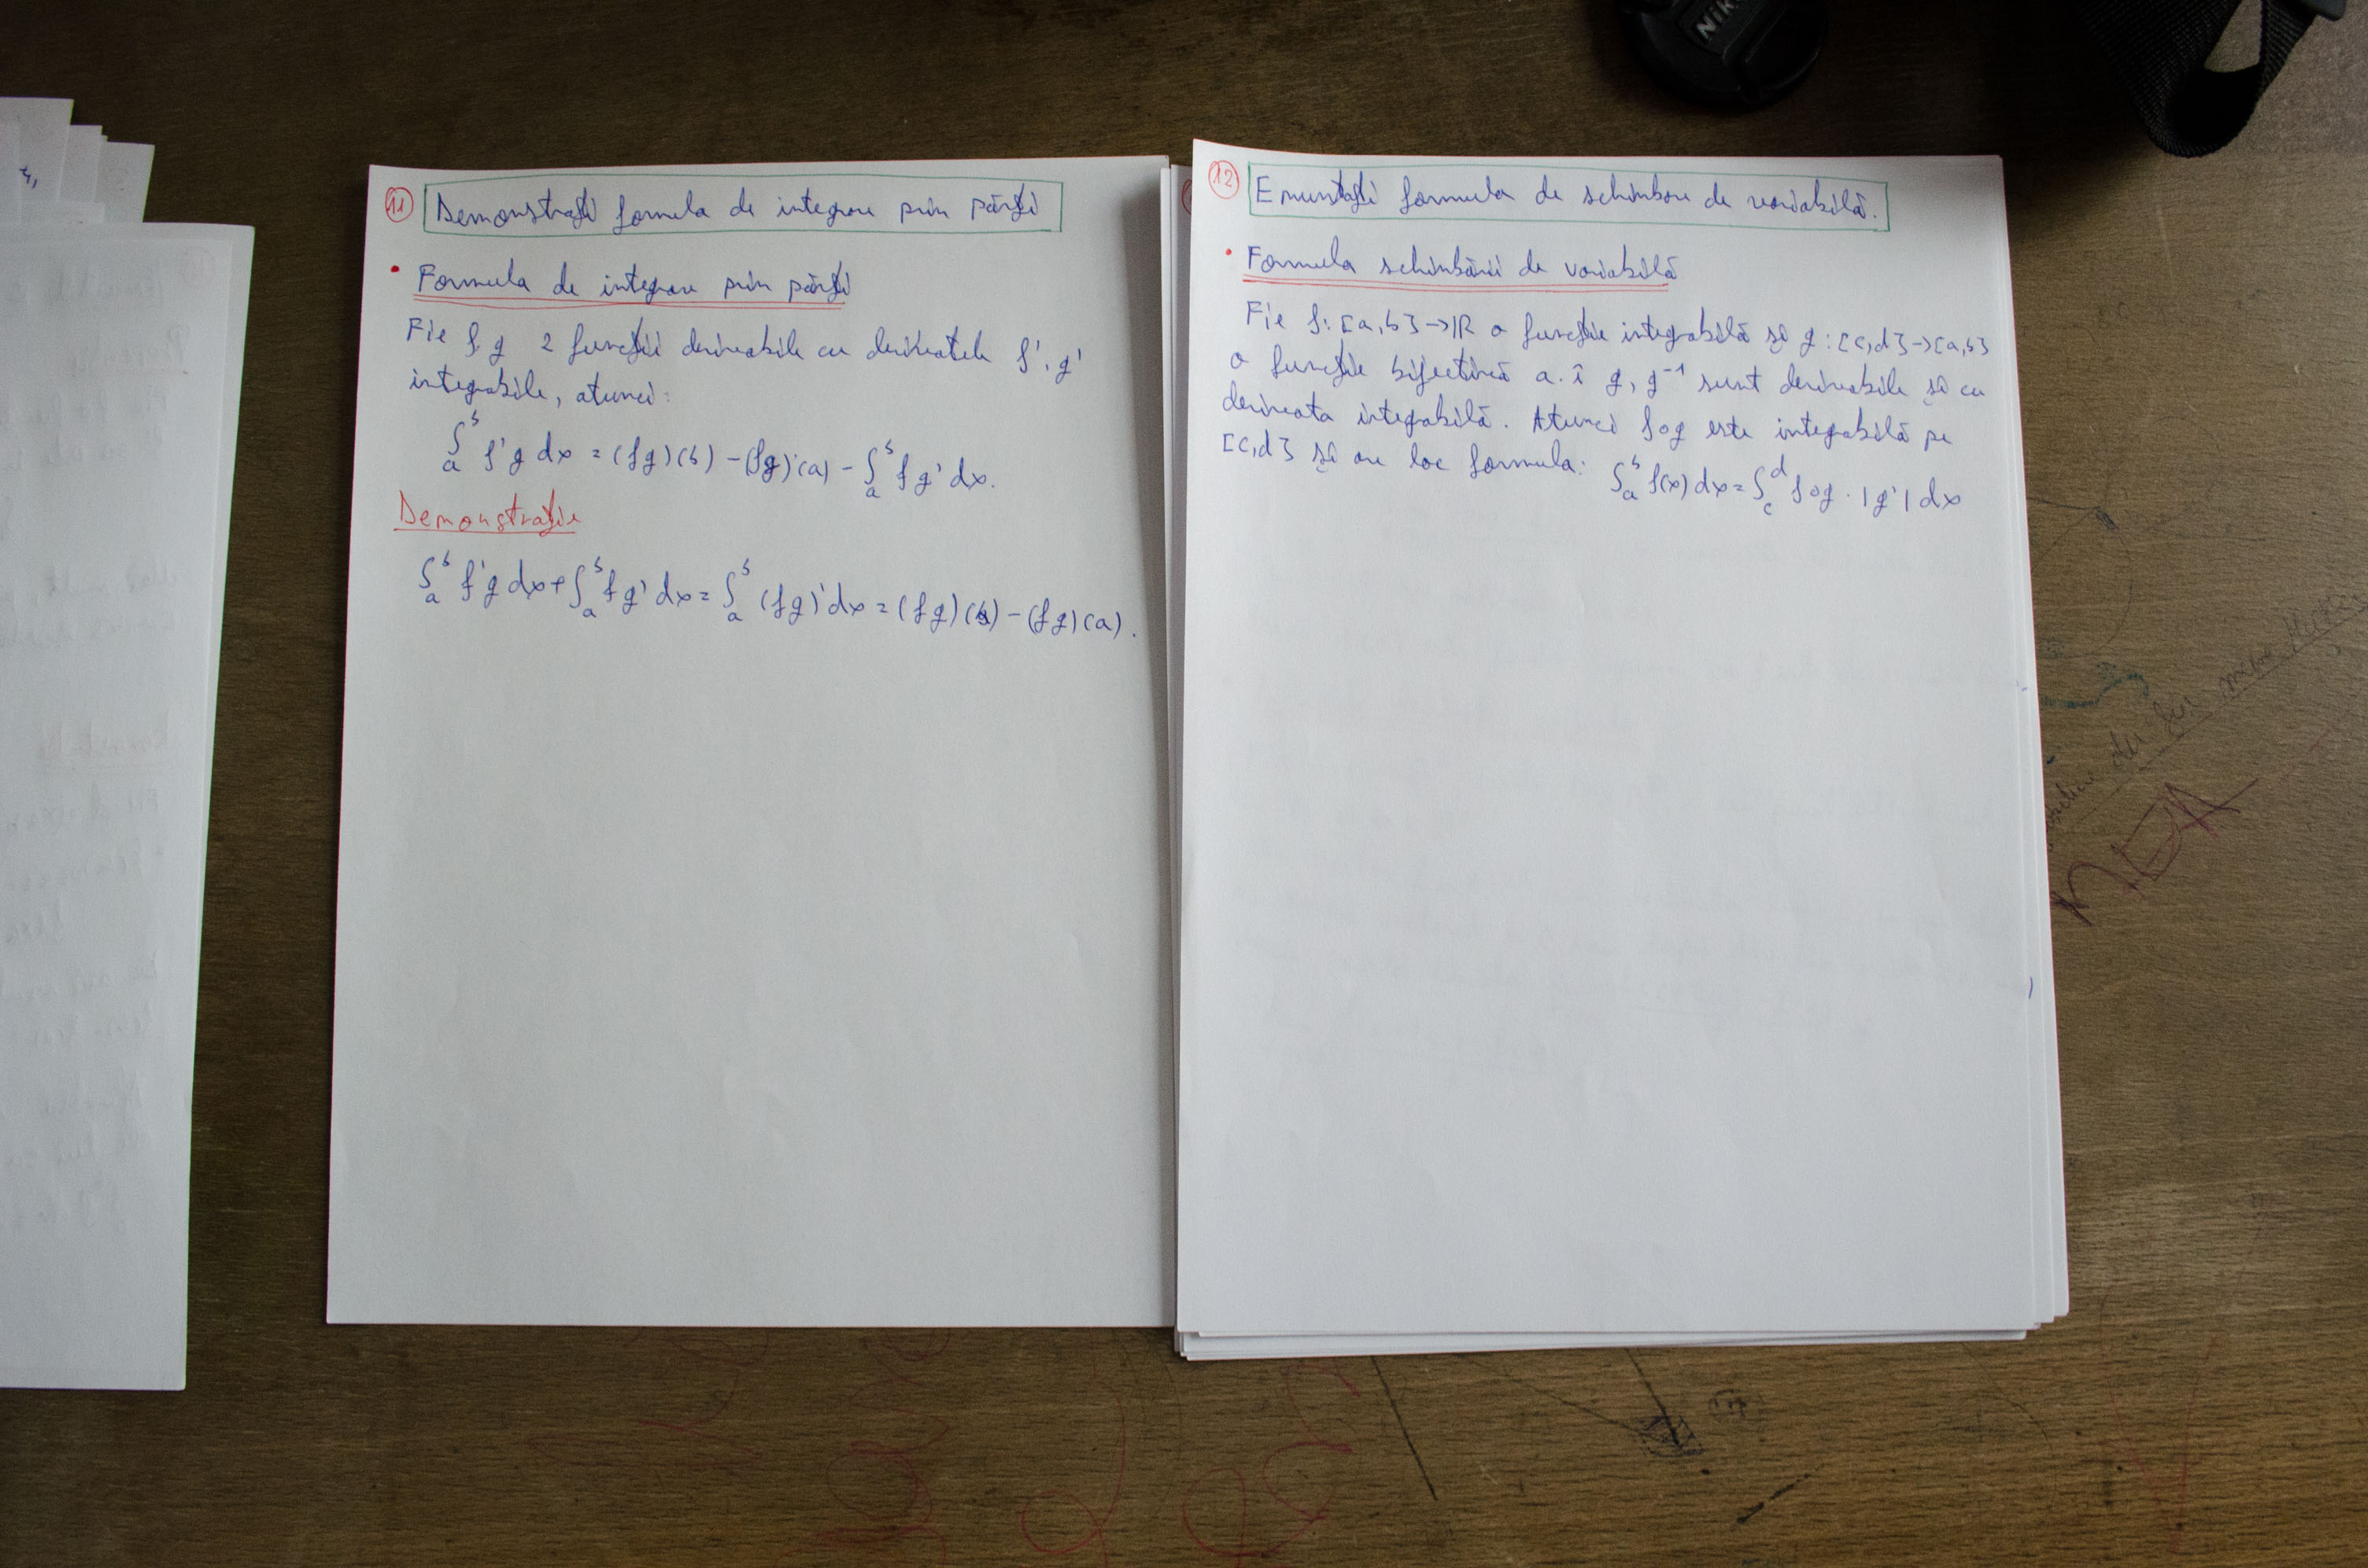 11 Demonstrați formula de integrare prin părți
• Formula de integrare prin părți
Fie f, g 2 funcții derivabile cu derivatele f', g'
integrabile, atunci:
∫_a^b f'g dx = (fg)(b) - (fg)(a) - ∫_a^b fg' dx.
Demonstrație
∫_a^b f'g dx + ∫_a^b fg' dx = ∫_a^b (fg)' dx = (fg)(b) - (fg)(a).
12 Enunțați formula de schimbare de variabilă.
• Formula schimbării de variabilă
Fie f: [a,b] → ℝ o funcție integrabilă și g: [c,d] → [a,b]
o funcție bijectivă a. î g, g⁻¹ sunt derivabile și cu
derivata integrabilă. Atunci f∘g este integrabilă pe
[c,d] și are loc formula: ∫_a^b f(x) dx = ∫_c^d f∘g · |g'| dx
NEA